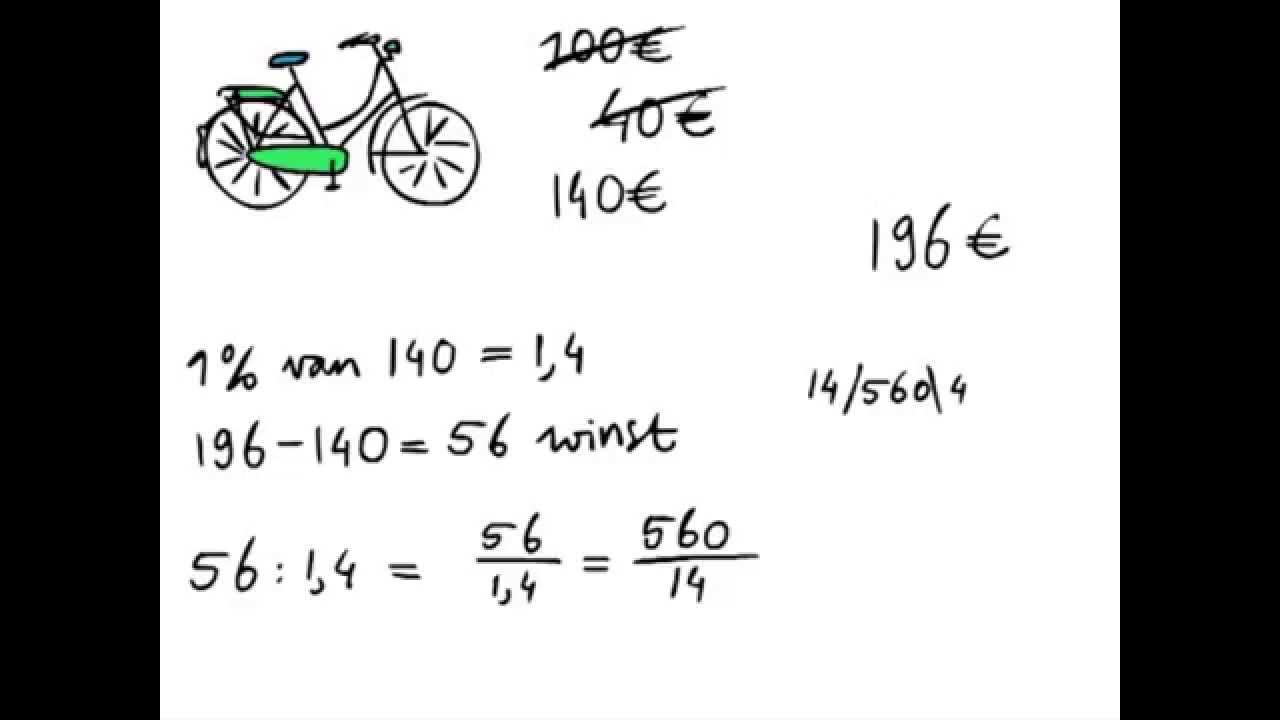 100€
40€
140€
196€
1% van 140 = 1,4
14/560\4
196-140 = 56 winst
56 : 1,4 = 56/1,4 = 560/14